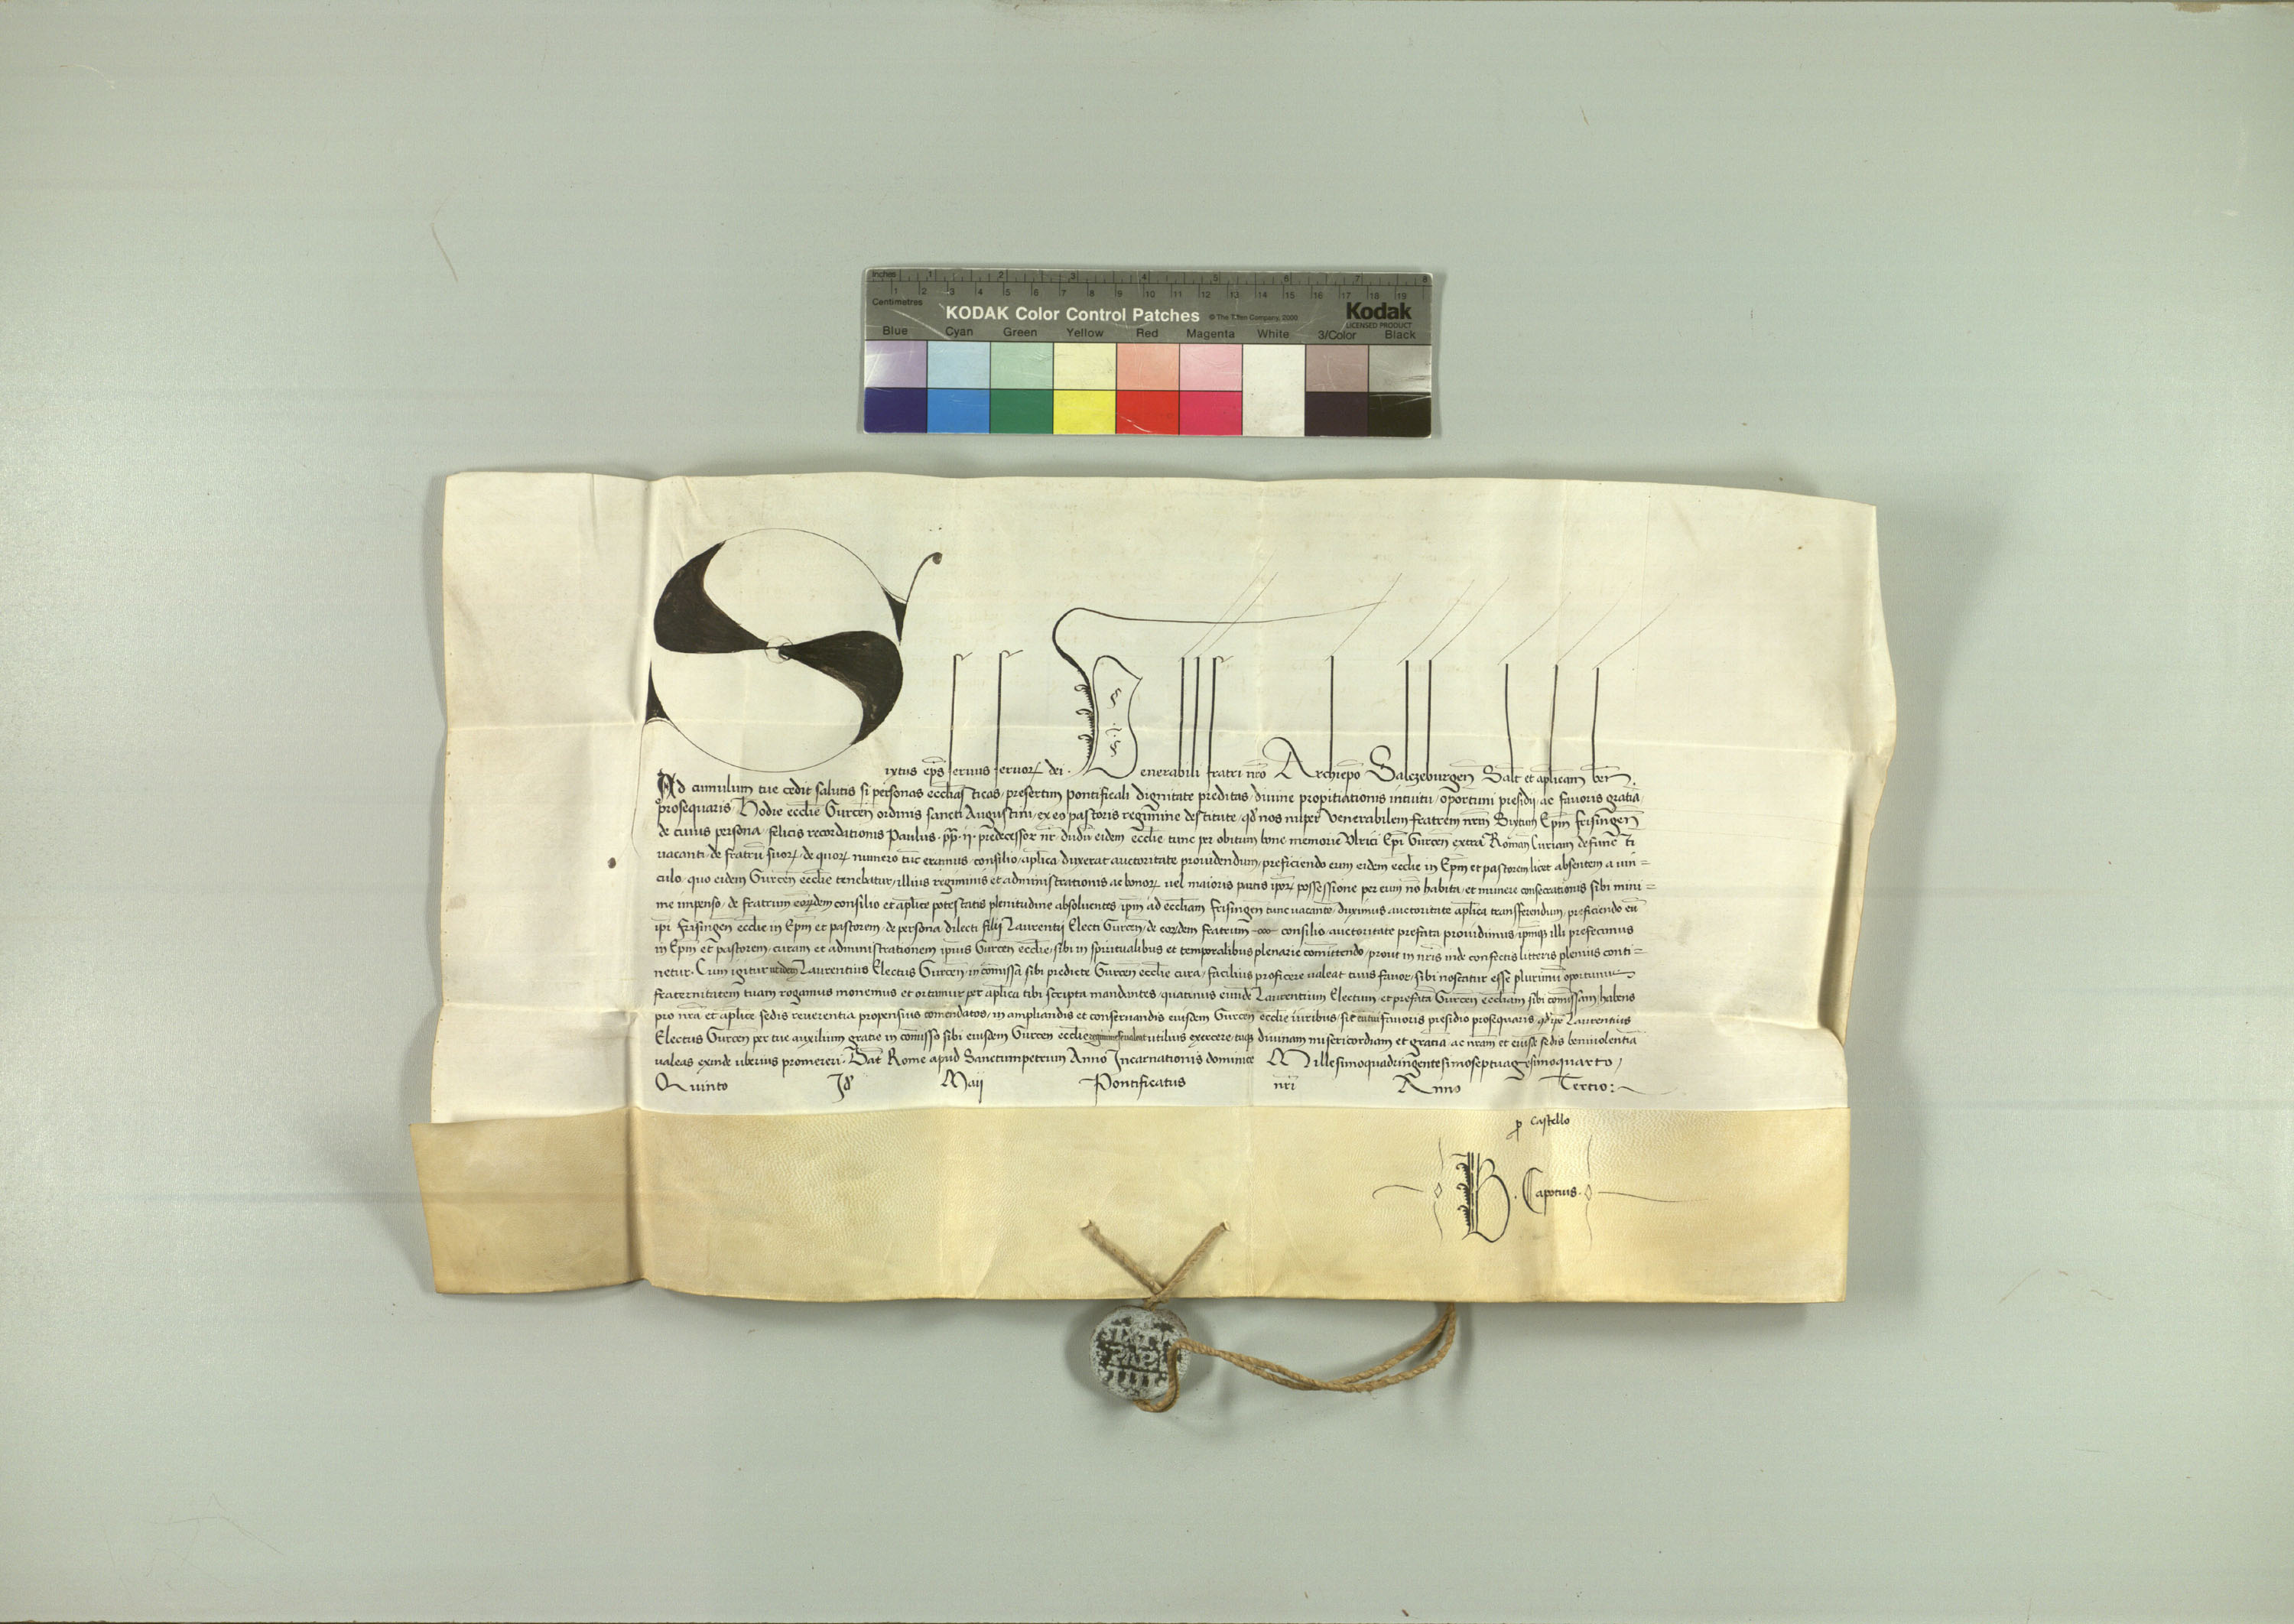 Inches 1 2 3 4 5 6 7 8
1 2 3 4 5 6 7 8 9 10 11 12 13 14 15 16 17 18 19
Centimetres
KODAK Color Control Patches © The Tiffen Company, 2000 Kodak
LICENSED PRODUCT
Blue Cyan Green Yellow Red Magenta White 3/Color Black
Sixtus ep̄s seruus seruoꝝ dei. Venerabili fratri nr̄o Archiepō Salczeburgen̄ Salt̄ et apl̄icam ben̄.
Ad cumulum tue cedit salutis si personas eccl̄iasticas/ presertim pontificali dignitate preditas/ diuine propitiationis intuitu/ oportuni presidij/ ac fauoris gratia/
prosequaris. Hodie eccl̄ie Gurcen̄ ordinis sancti Augustini/ ex eo pastoris regimine destitute/ qd̓ nos nuper Venerabilem fratrem nr̄m Sixtum Ep̄m Frisingen̄
de cuius persona/ felicis recorditionis Paulus. pp̄. ij. predecessor nr̄. dudū eidem eccl̄ie tunc per obitum bone memorie Vlrici Ep̄i Gurcen̄ extra Roman̄ Curiam defuncti
vacanti. de fratrū suoꝝ/ de quoꝝ numero tūc eramus/ consilio/ apl̄ica duxerat auctoritate prouidendum/ preficiendo eum eidem eccl̄ie in Ep̄m et pastorem licet absentem a uin=
culo/ quo eidem Gurcen̄ eccl̄ie tenebatur/ illius regiminis et administrationis ac bonoꝝ uel maioris partis ip̄oꝝ possessione per eum nō habita/ et munere consecrationis sibi mini=
me impenso/ de fratrum eoꝝdem consilio et apl̄ice potestatis plenitudine absoluentes ip̄m ad eccl̄iam Frisingen̄ tunc vacante/ duximus auctoritate apl̄ica transferendum/ preficiendo eū
ip̄i Frisingen̄ eccl̄ie in Ep̄m et pastorem/ de persona dilecti filij Laurentij Electi Gurcen̄/ de eoꝝdem fratrum consilio auctoritate prefata prouidimus/ ipmqꝫ illi prefecimus
in Ep̄m et pastorem/ curam et administrationem ipsius Gurcen̄ eccl̄ie/ sibi in spiritualibus et temporalibus plenarie comittendo/ prout in nr̄is inde confectis litteris plenius conti=
netur. Cum igitur utidem Laurentius Electus Gurcen̄ in cōmissa sibi predicte Gurcen̄ eccl̄ie cura/ facilius proficere ualeat tuus fauor/ sibi noscatur esse plurimū oportunus
fraternitatem tuam rogamus monemus et ortamur per apl̄ica tibi scripta mandantes/ quatinus eundē Laurentium Electum et prefatā Gurcen̄ eccl̄iam sibi cōmissam/ habens
pro nr̄a et apl̄ice sedis reuerentia propensius comendatos/ in ampliandis et conseruandis eiusdem Gurcen̄ eccl̄ie iuribus/ sic eum tui fauoris presidio prosequaris/ qd̓ ip̄e Laurentius
Electus Gurcen̄ per tue auxilium gratie in cōmisso sibi eiusdem Gurcen̄ eccl̄ie regimine se ualeat utilius exercere/ tuqꝫ diuinam misericordiam et gratiā/ ac nr̄am et eiusdē sedis beniuolentiā
valeas exinde uberius promereri. Dat̄ Rome apud Sanctumpetrum Anno Incarnationis dominice Millesimoquadringentesimoseptuagesimoquarto/
Quinto Id̓ Maij Pontificatus nr̄i Anno Tertio:
ꝓ Castello
B. Capotius.
SIXTVS
PAPA
IIII